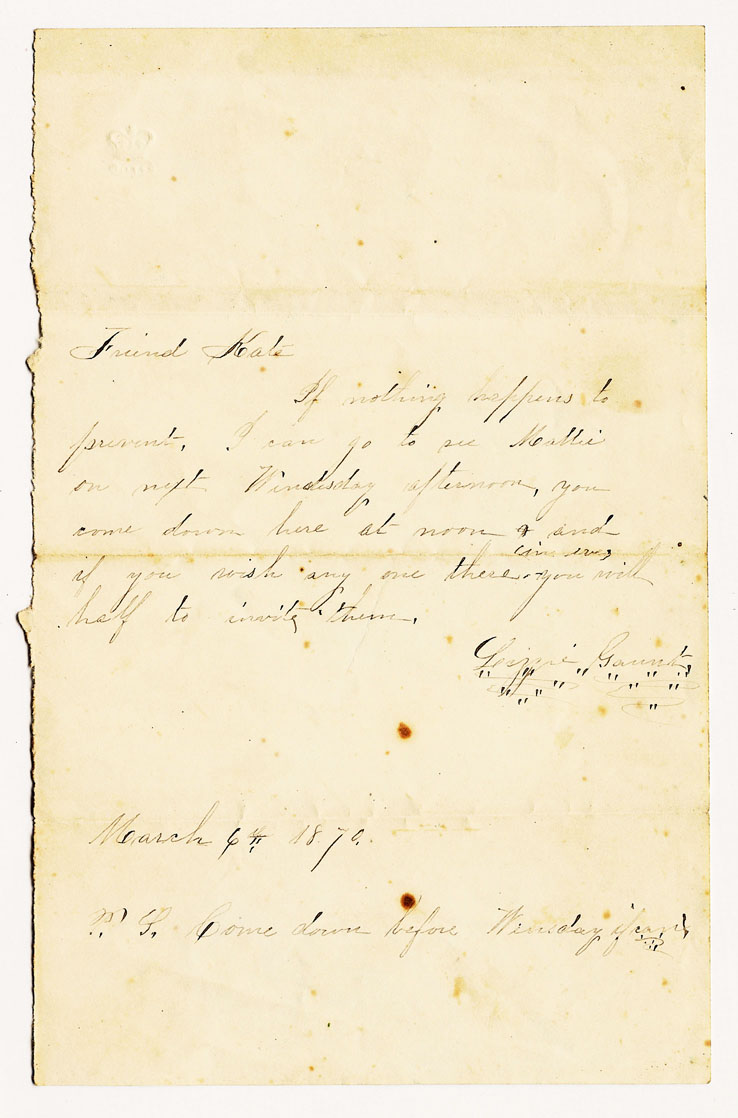 Friend Kate
If nothing happens to
prevent. I can go to see Mattie
on next Windesday afternoon, you
come down here at noon & and
if you wish any one there you will
half to invite them.
Lizzie Gaunt,
March 6th 1870.
P. S. Come down before Winsday if can